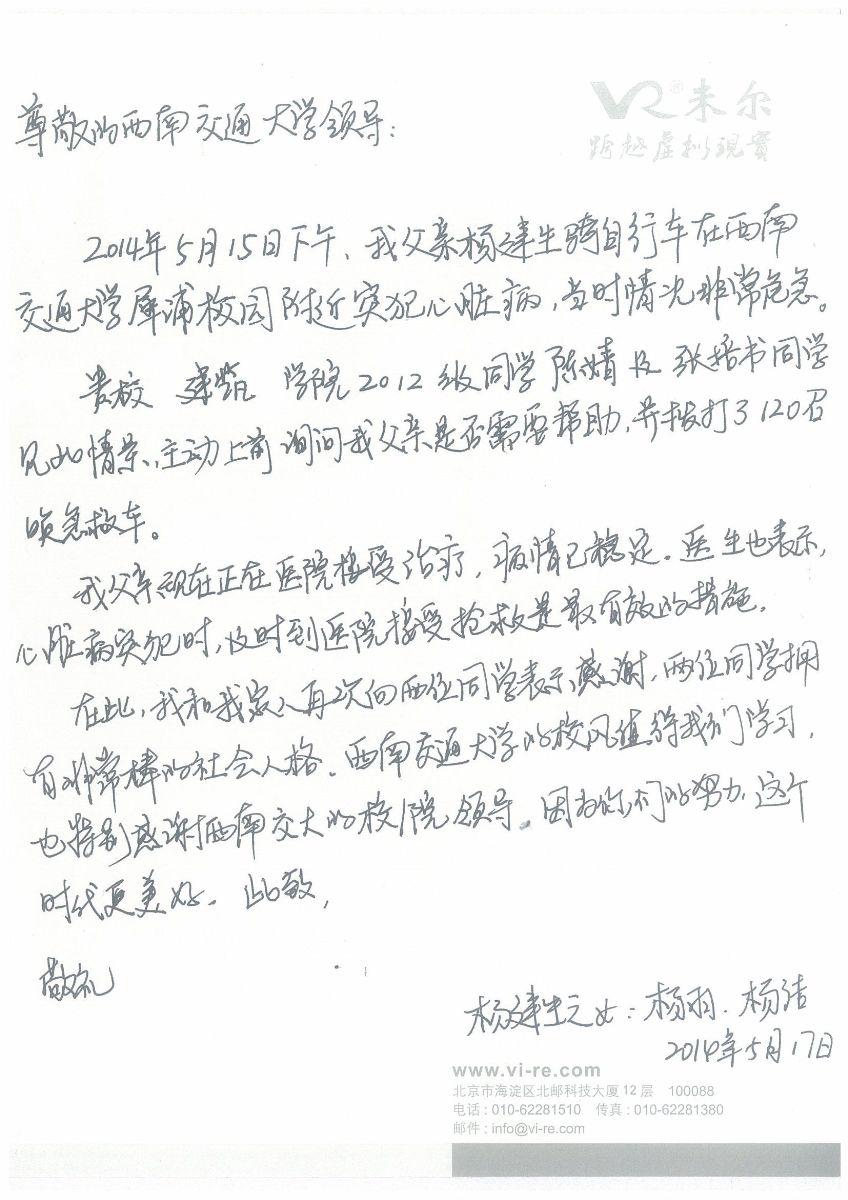 VR®未尔
跨越虚拟現實
尊敬的西南交通大学领导:
2014年5月15日下午、我父亲杨建生骑自行车在西南
交通大学犀浦校园附近突犯心脏病,当时情况非常危急。
贵校 建筑 学院2012级同学陈婧及张培书同学
见此情景、主动上前询问我父亲是否需要帮助,并拨打了120召
唤急救车。
我父亲现在正在医院接受治疗,病情已稳定。医生也表示,
心脏病突犯时,及时到医院接受抢救是最有效的措施。
在此,我和我家人再次向两位同学表示感谢,两位同学拥
有非常棒的社会人格。西南交通大学的校风值得我们学习,
也特别感谢西南交大的校/院领导。因为你们的努力,这个
时代更美好。 此致,
敬礼
杨建生之女:杨羽、杨洁
2014年5月17日
www.vi-re.com
北京市海淀区北邮科技大厦12层 100088
电话:010-62281510 传真:010-62281380
邮件:info@vi-re.com